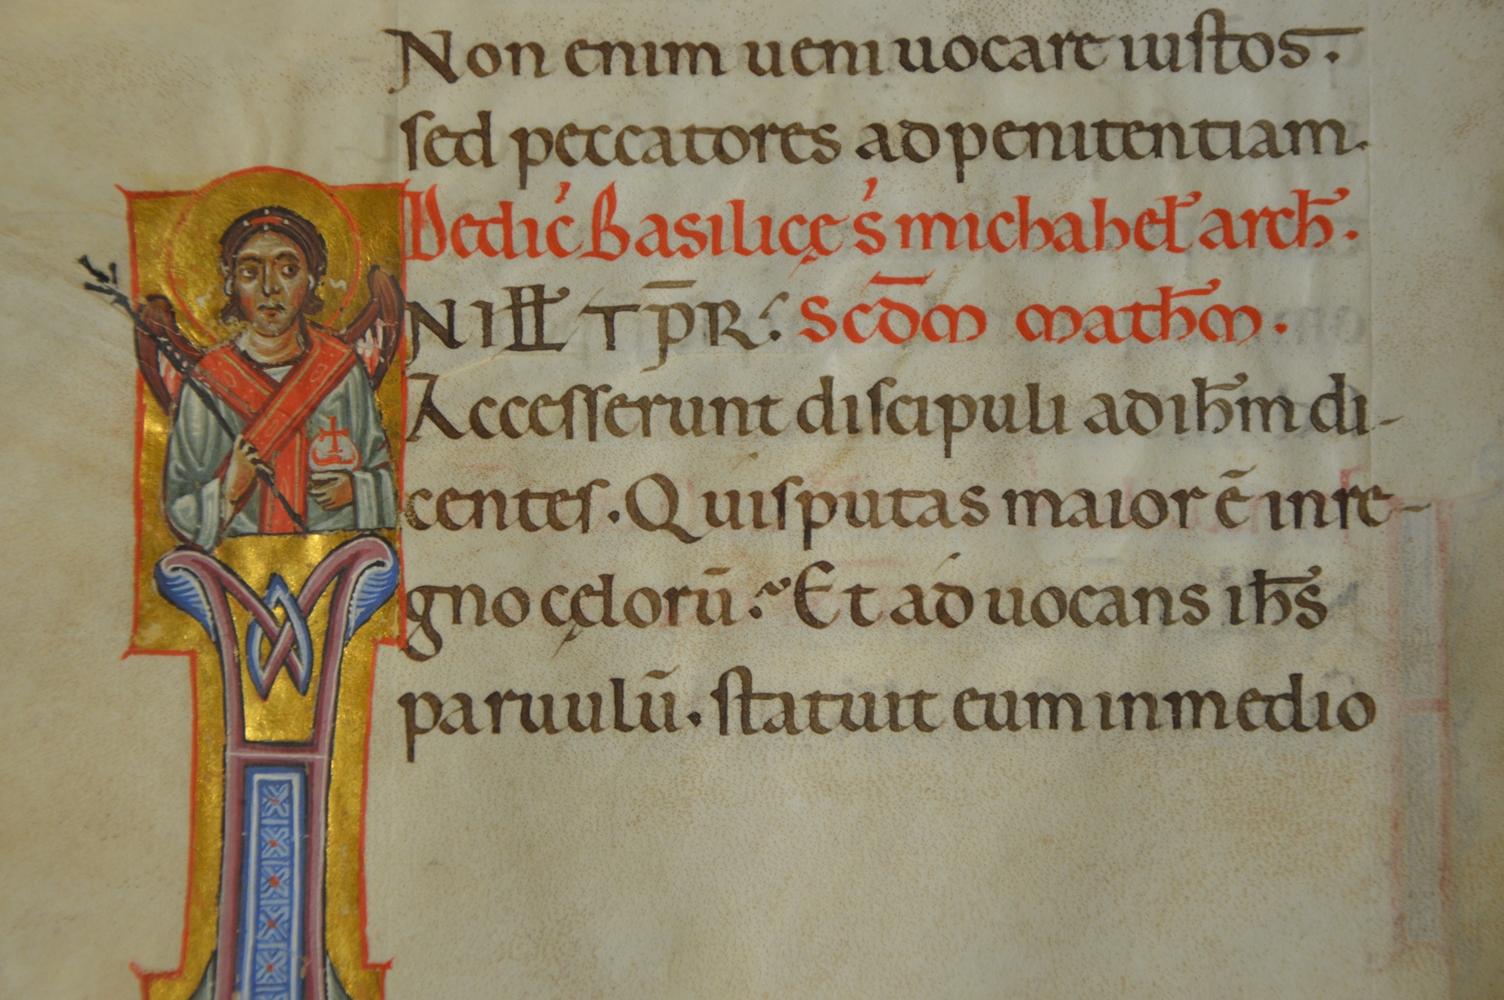 Non enim ueni uocare iustos.
sed peccatores ad penitentiam.
Dedic̄ basilicę s̄ michahel̄ arch̄.
N ILL̶ T P̄R: SCD̄M MATH̄M.
Accesserunt discipuli ad ih̄m di-
centes. Quis putas maior ē in re-
gno cęlorū? Et aduocans ih̄s
paruulū. statuit eum in medio